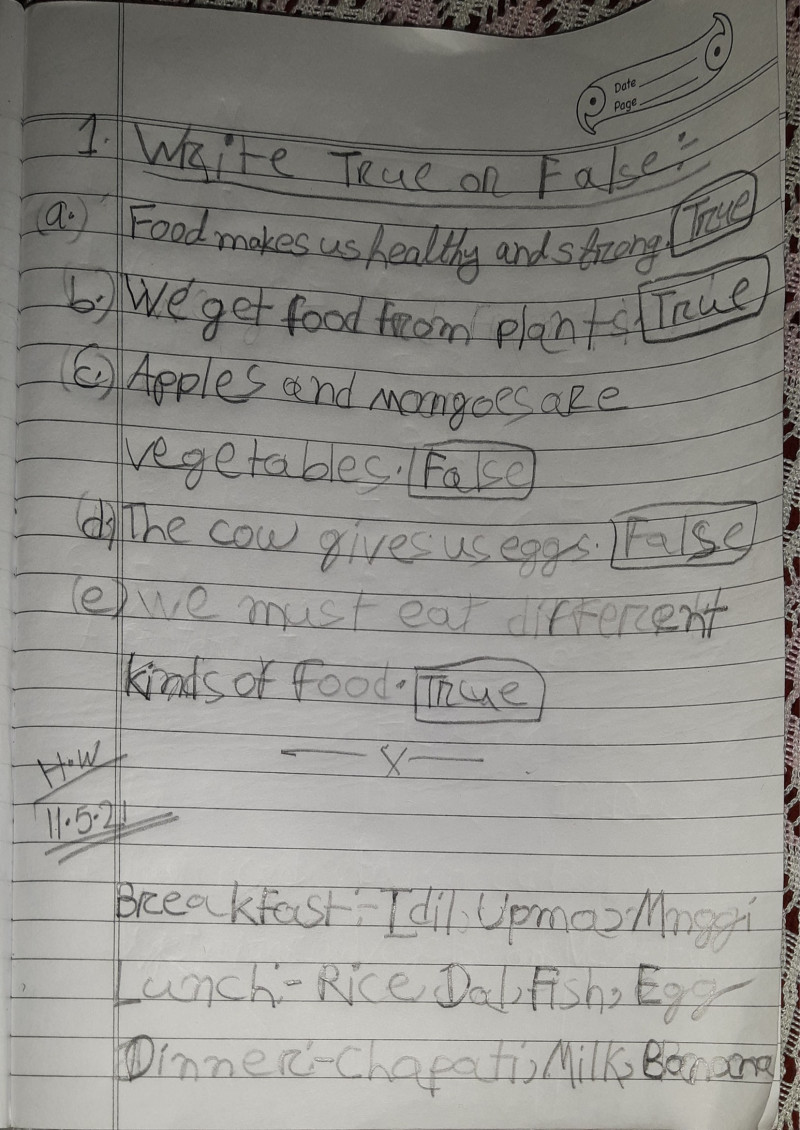 Date
Page
1. Write True or False:-
(a.) Food makes us healthy and strong. True
b.) We get food from plants. True
(c.) Apples and mangoes are
vegetables. False
(d) The cow gives us eggs. False
(e) We must eat different
kinds of food. True
— x —
H.W
11.5.21
Breakfast:- Idil, Upma, Mnggi
Lunch:- Rice, Dal, Fish, Egg
Dinner:- Chapati, Milk, Banana